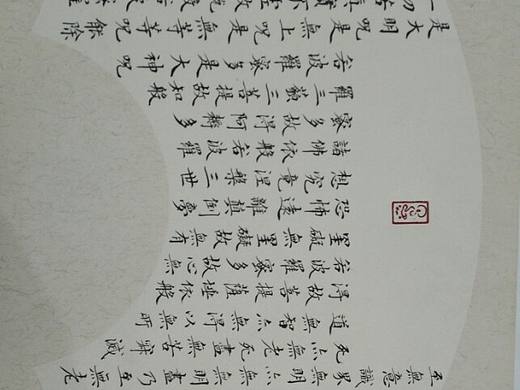 至無意識界無無明亦無無明盡乃至無老
死亦無老死盡無苦集滅
道無智亦無得以無所
得故菩提薩埵依般
若波羅蜜多故心無
罣礙無罣礙故無有
恐怖遠離顛倒夢
想究竟涅槃三世
諸佛依般若波羅
蜜多故得阿耨多
羅三藐三菩提故知般
若波羅蜜多是大神呪
是大明呪是無上呪是無等等呪能除
一切